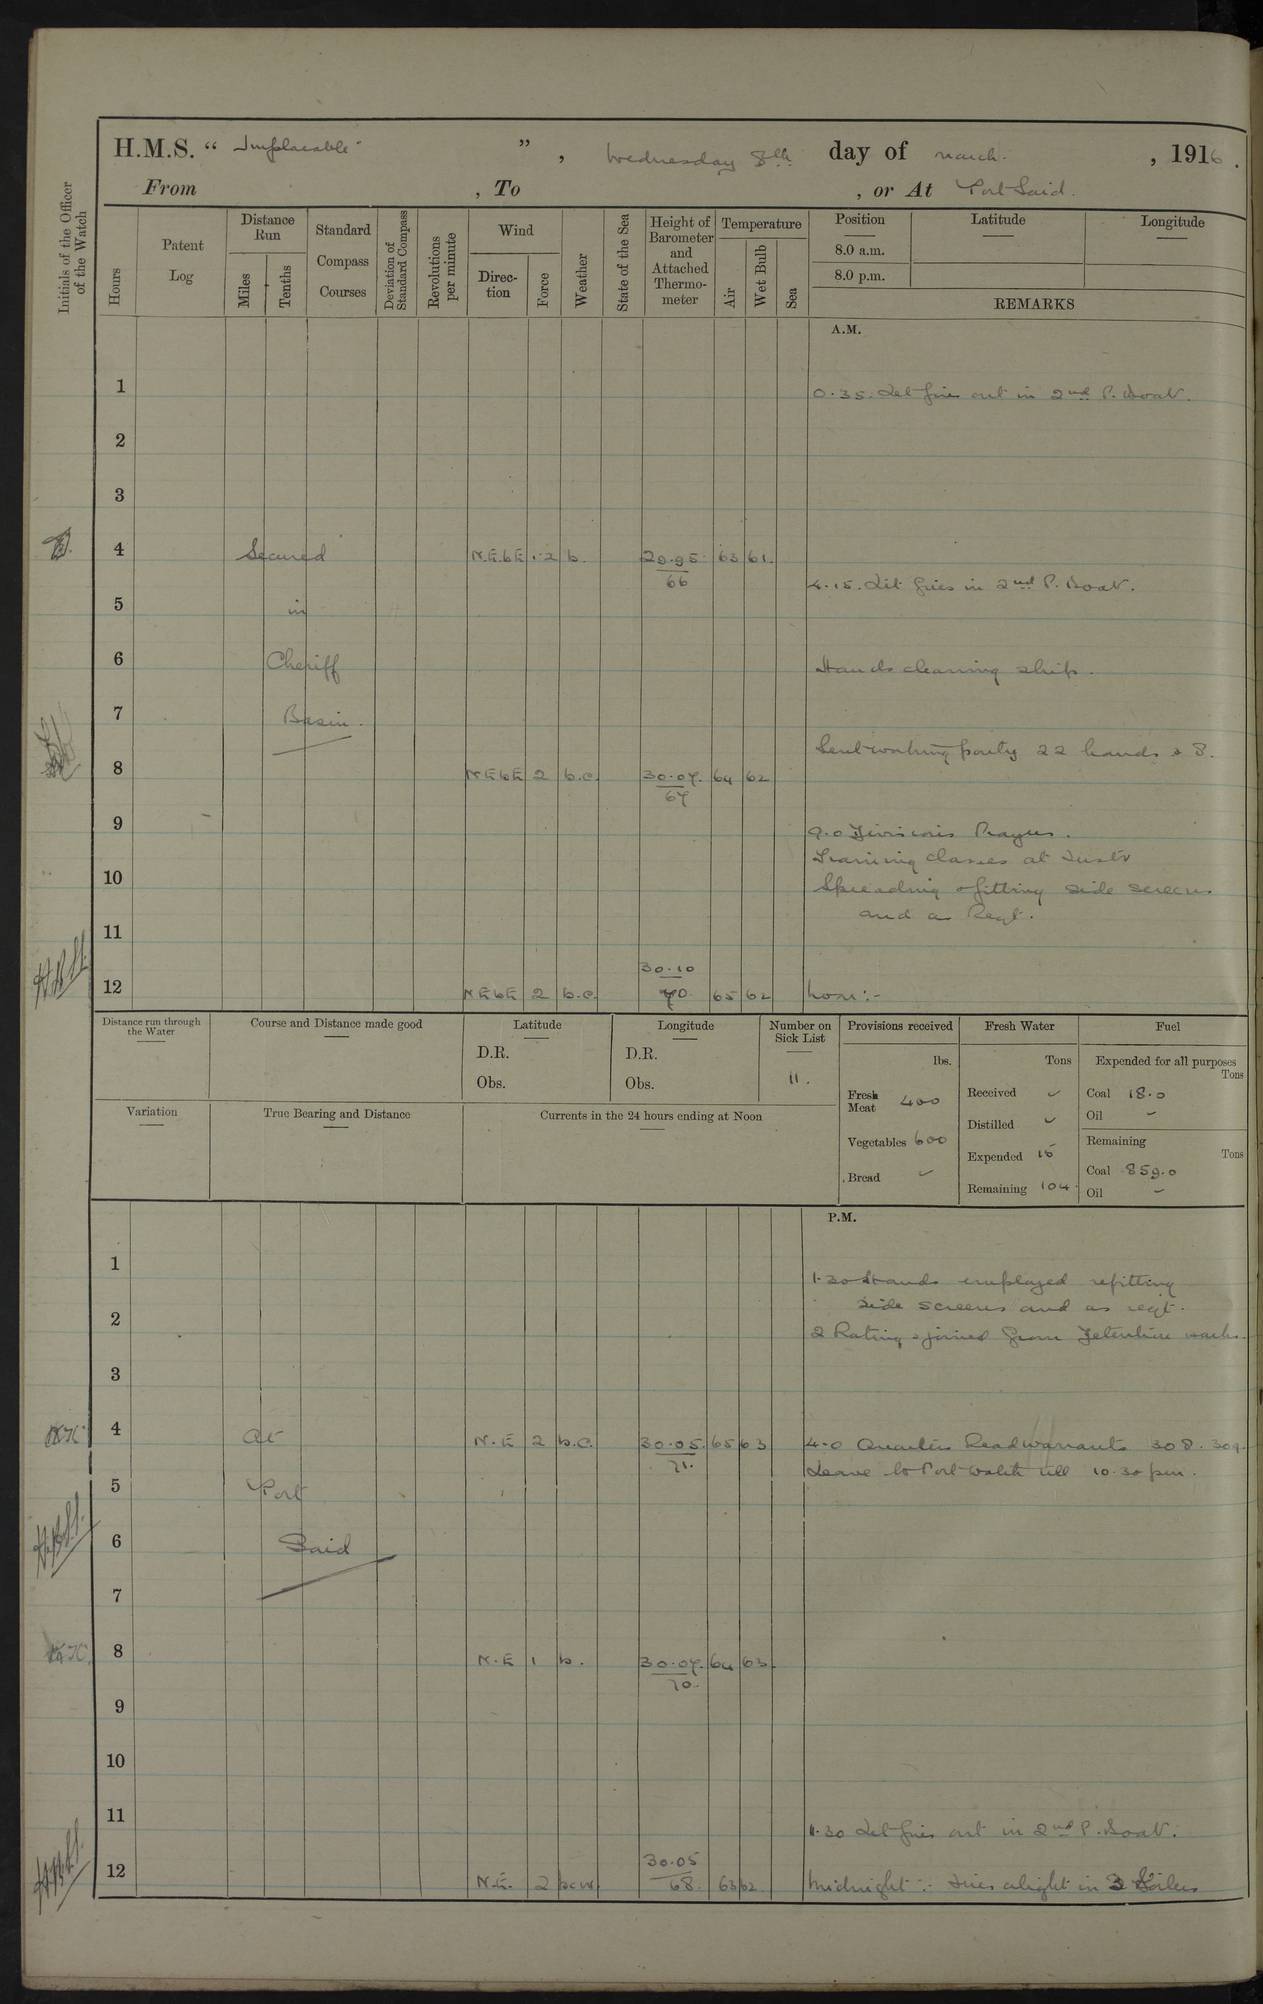 H.M.S. “ Implacable ” , Wednesday 8th day of March. , 1916 .
From , To , or At Port Said.
Initials of the Officer of the Watch
Hours
Patent Log
Distance Run
Miles
Tenths
Standard Compass Courses
Deviation of Standard Compass
Revolutions per minute
Wind
Direc-tion
Force
Weather
State of the Sea
Height of Barometer and Attached Thermo-meter
Temperature
Air
Wet Bulb
Sea
Position Latitude Longitude
8.0 a.m.
8.0 p.m.
REMARKS
A.M.
1 0.35. Let fires out in 2nd P. Boat.
2
3
4 Secured N.E.bE 1-2 b. 29.95 66 63 61.
4.15. Lit fires in 2nd P. Boat.
5 in
6 Cheriff Hands cleaning ship.
7 Basin.
Sent working party 22 hands & 8.
8 N.E.bE 2 b.c. 30.07. 67 64 62
9 9.0 Divisions Prayers.
Training classes at Instr
10 Spreading & fitting side screens
and as Reqt.
11
12 N.E.bE 2 b.c. 30.10 70 65 62 Noon:-
Distance run through the Water
Course and Distance made good
Latitude
D.R.
Obs.
Longitude
D.R.
Obs.
Number on Sick List
11.
Provisions received
lbs.
Fresh Meat 400
Vegetables 600
Bread ✓
Fresh Water
Tons
Received ✓
Distilled ✓
Expended 15
Remaining 104.
Fuel
Expended for all purposes
Tons
Coal 18.0
Oil –
Remaining
Tons
Coal 859.0
Oil –
Variation
True Bearing and Distance
Currents in the 24 hours ending at Noon
P.M.
1 1.30 Hands employed refitting
side screens and as reqt.
2 2 Ratings joined from Detention
3
4 At N.E 2 b.c. 30.05. 71. 65 63 4.0 Quarters Read warrants 308. 309.
Leave to Port Watch till 10.30 pm.
5 Port
6 Said
7
8 N.E 1 b. 30.07. 70. 64 63
9
10
11 11.30 Let fires out in 2nd P. Boat.
12 N.E. 2 bcw. 30.05 68. 63 62 Midnight:- Fires alight in 3 Boilers